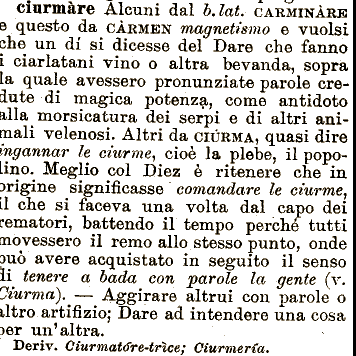 ciurmàre Alcuni dal b. lat. CARMINÀRE
e questo da CÀRMEN magnetismo e vuolsi
che un dí si dicesse del Dare che fanno
i ciarlatani vino o altra bevanda, sopra
la quale avessero pronunziate parole cre-
dute di magica potenza, come antidoto
alla morsicatura dei serpi e di altri ani-
mali velenosi. Altri da CIÚRMA, quasi dire
ingannar le ciurme, cioè la plebe, il popo-
lino. Meglio col Diez è ritenere che in
origine significasse comandare le ciurme,
il che si faceva una volta dal capo dei
rematori, battendo il tempo perché tutti
movessero il remo allo stesso punto, onde
può avere acquistato in seguito il senso
di tenere a bada con parole la gente (v.
Ciurma). — Aggirare altrui con parole o
altro artifizio; Dare ad intendere una cosa
per un'altra.
Deriv. Ciurmatóre-trìce; Ciurmería.